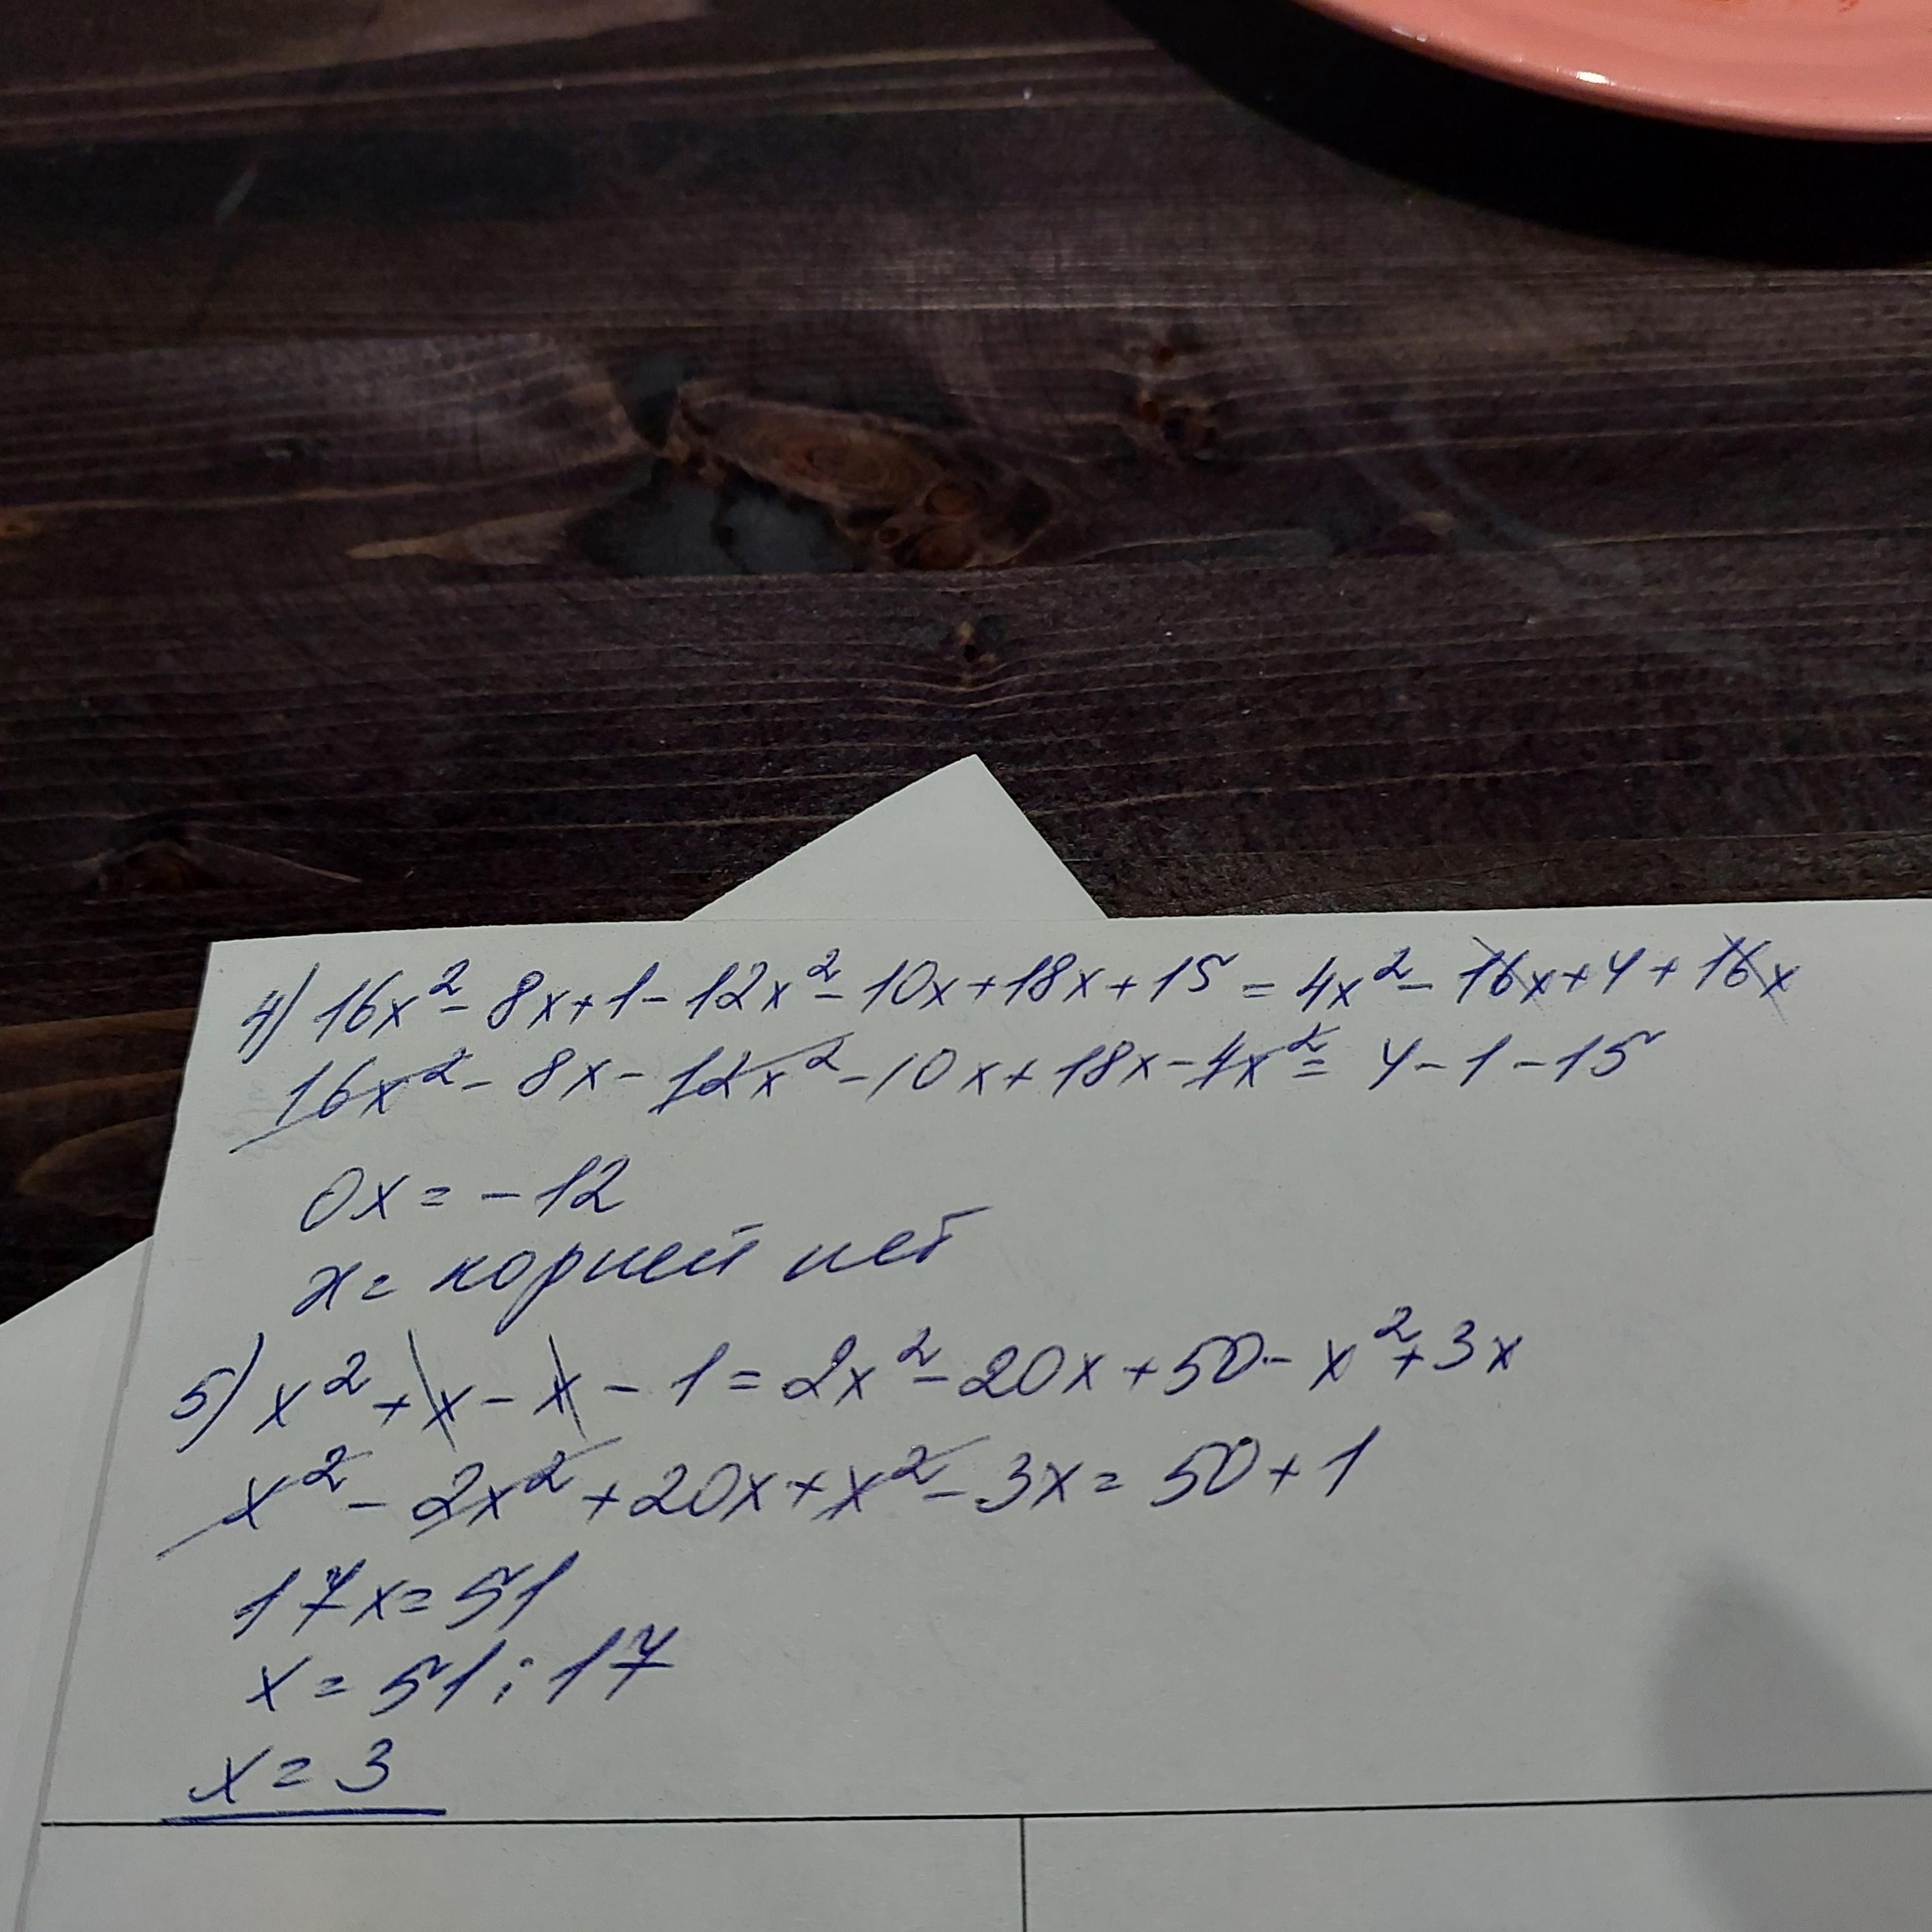 4) 16x² - 8x + 1 - 12x² - 10x + 18x + 15 = 4x² - 16x + 4 + 16x
16x² - 8x - 12x² - 10x + 18x - 4x² = 4 - 1 - 15
0x = - 12
x = корней нет
5) x² + x - x - 1 = 2x² - 20x + 50 - x² + 3x
x² - 2x² + 20x + x² - 3x = 50 + 1
17x = 51
x = 51 : 17
x = 3